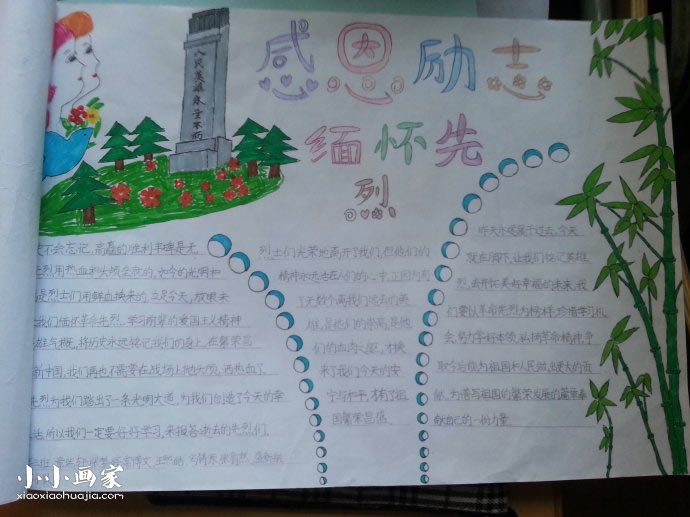 感恩励志
缅怀先
烈
人民英雄永垂不朽
不会忘记,高矗的胜利丰碑是无
烈用热血和头颅金就的,如今的光明和
是烈士们用鲜血换来的,立足今天,放眼未
我们缅怀革命先烈,学习刚郑的爱国主义精神
雄气概,将历史永远铭记我们的身上,在繁荣昌
新中国,我们再也不需要在战场上抛头颅,洒热血了
先烈为我们踏出了一条光明大道,为我们创造了今天的幸
所以我们一定要好好学习,来报答逝去的先烈们。
烈士们光荣地离开了我们,但他们的
精神永远活在人们的心中,正因为有
了无数个离我们远去的英
雄,是他们的崇高,是他
们的血肉之躯,才换
来了我们今天的安
宁与和平,才有了祖
国繁荣昌盛
昨天永远属于过去,今天
就在脚下,让我们铭记英雄
烈,去开怀美好幸福的未来,我
们要以革命先烈为榜样,珍惜学习机
会,努力学好本领,弘扬革命精神,争
取今后能为祖国和人民做出更大的贡
献,为谱写祖国的繁荣发展的篇章奉
献自己的一份力量
小小画家
xiaoxiaohuajia.com